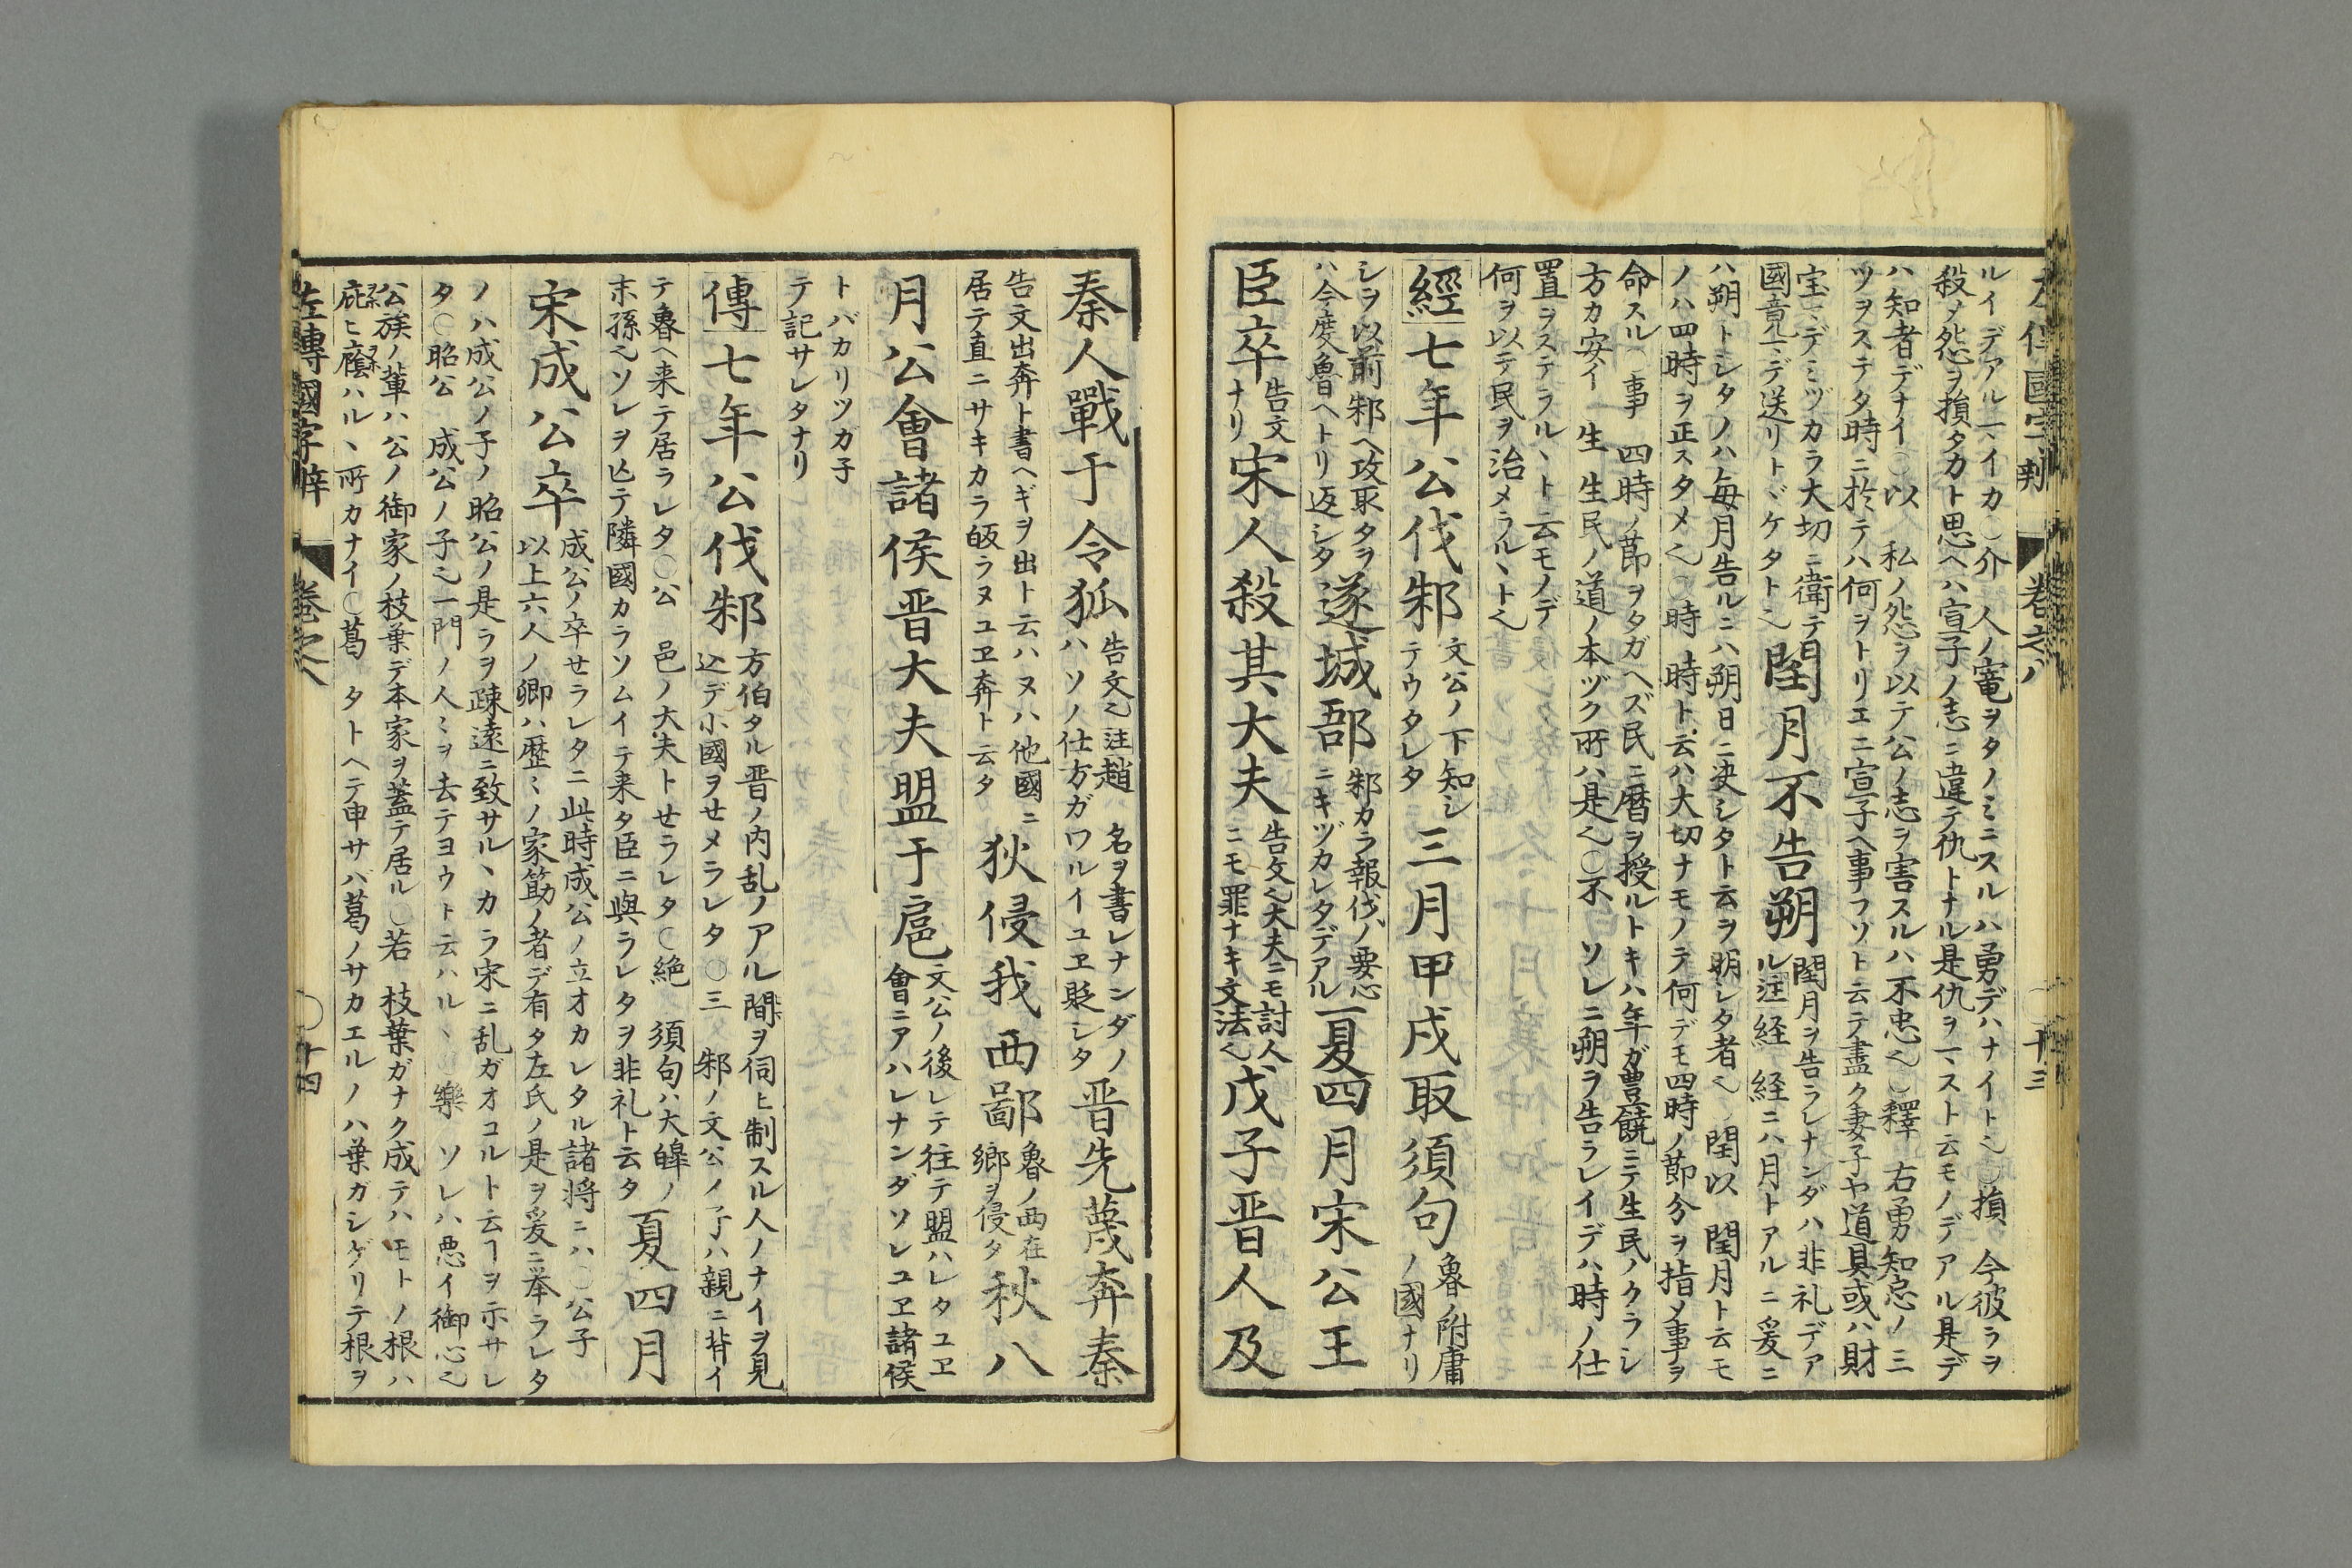 左傳國字辨 卷之八 十三
ルイデアル一、イカ○介 人ノ寵ヲタノミニスルハ勇デハナイト也○損 今彼ラヲ
殺メ怨ヲ損タカト思ヘハ宣子ノ志ニ違テ仇トナル是仇ヲ一、スト云モノデアル是デ
ハ知者デナイ○以 私ノ怨ヲ以テ公ノ志ヲ害スルハ不忠也○釋 右勇知忠ノ三
ツヲステタ時ニ於テハ何ヲトリエニ宣子ヘ事フゾト云テ盡ク妻子ヤ道具或ハ財
宝ニデミヅカラ大切ニ衛テ
國竟一デ送リトヾケタト也
閏月不告朔
閏月ヲ告ラレナンダハ非礼デア
ル注経 経ニハ月トアルニ爰ニ
ハ朔トシタノハ毎月告ルニハ朔日ニ决シタト云ヲ明シタ者也 閏以 閏月ト云モ
ノハ四時ヲ正スタメ也○時 時ト云ハ大切ナモノラ何デモ四時ノ節分ヲ指メ事ヲ
命スル○事 四時ノ節ヲタガヘズ民ニ暦ヲ授ルトキハ年ガ豊饒ニテ生民ノクラシ
方カ安イ 生 生民ノ道ノ本ヅク所ハ是也○不 ソレニ朔ヲ告ラレイデハ時ノ仕
置ヲステラルヽト云モノデ
何ヲ以テ民ヲ治メラルヽト也
經七年公伐邾
文公ノ下知シ
テウタレタ
三月甲戌取須句
魯ノ附庸
ノ國ナリ
シヲ以前邾ヘ攻取タヲ
ハ今度魯ヘトリ返シタ
遂城郚
邾カラ報伐ノ要心
ニキヅカレタデアル
夏四月宋公王
臣卒
告文
ナリ
宋人殺其大夫
告文也大夫ニモ討人
ニモ罪ナキ文法也
戊子晉人及
秦人戰于令狐
告文也注趙 名ヲ書レナンダノ
ハソノ仕方ガワルイユヱ貶シタ
晉先蔑奔秦
告文出奔ト書ヘギヲ出ト云ハヌハ他國ニ
居テ直ニサキカラ皈ラヌユヱ奔ト云タ
狄侵我西鄙
魯ノ西在
鄉ヲ侵タ
秋八
月公會諸侯晉大夫盟于扈
文公ノ後レテ往テ盟ハレタユヱ
會ニアハレナンダソレユヱ諸侯
トバカリツガ子
テ記サレタナリ
傳七年公伐邾
方伯タル晉ノ内乱ノアル間ヲ伺ヒ制スル人ノナイヲ見
込デ小國ヲせメラレタ○三 邾ノ文公ノ子ハ親ニ背イ
テ魯ヘ来テ居ラレタ○公 邑ノ大夫トせラレタ○絶 須句ハ大皥ノ
末孫也ソレヲ亡テ隣國カラソムイテ来タ臣ニ與ラレタヲ非礼ト云タ
夏四月
宋成公卒
成公ノ卒せラレタニ此時成公ノ立オカレタル諸将ニハ○公子
以上六人ノ卿ハ歴ミノ家筋ノ者デ有タ左氏ノ是ヲ爰ニ挙ラレタ
ノハ成公ノ子ノ昭公ノ是ラヲ疎遠ニ致サルヽカラ宋ニ乱ガオコルト云ヿヲ示サレ
タ○昭公 成公ノ子也一門ノ人ミヲ去テヨウト云ハルヽ○樂 ソレハ悪イ御心也
公族ノ輩ハ公ノ御家ノ枝葉デ本家ヲ蓋テ居ル○若 枝葉ガナク成テハモトノ根ハ
庇ヒ廕ハルヽ所カナイ○葛 タトヘテ申サバ葛ノサカエルノハ葉ガシゲリテ根ヲ
左傳國字辨 卷之八 十四